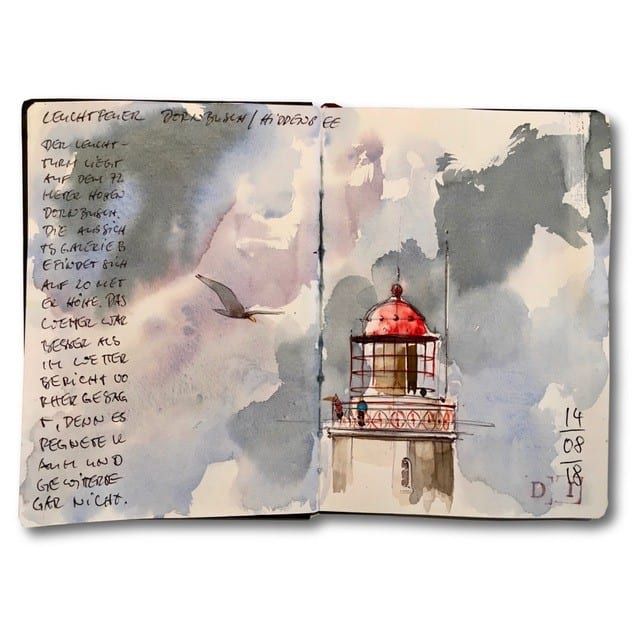 LEUCHTFEUER DORNBUSCH / HIDDENSEE
DER LEUCHT-
TURM LIEGT
AUF DEM 72
METER HOHEN
DORNBUSCH.
DIE AUSSICH
TSGALERIE B
EFINDET SICH
AUF 20 MET
ER HÖHE. DAS
WETTER WAR
BESSER ALS
IM WETTER
BERICHT VO
RHERGESAG
T, DENN ES
REGNETE K
AUM UND
GEWITTERTE
GAR NICHT.
14
08
18